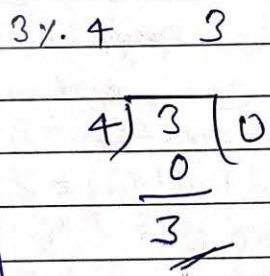 3 % 4 3
4) 3 ( 0
0
3